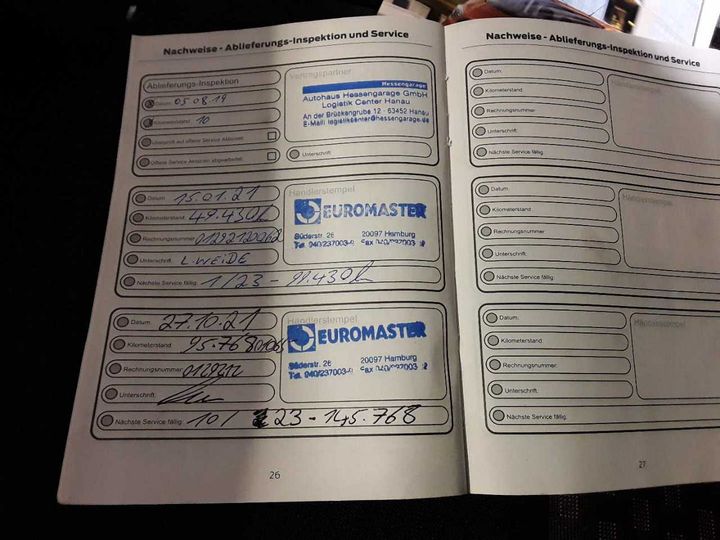 Nachweise - Ablieferungs-Inspektion und Service
Ablieferungs-Inspektion
Datum 05 08 19
Kilometerstand 10
Offene Service Aktionen abgearbeitet
Vertragspartner
Hessengarage
Autohaus Hessengarage GmbH
Logistik Center Hanau
An der Brückengrube 12 · 63452 Hanau
E-Mail: logistikcenter@hessengarage.de
Unterschrift
Datum 15.01.21
Kilometerstand 49.430
Rechnungsnummer 01292120062
Unterschrift L. WEIDE
Nächste Service fällig 1/23 - 99.430
Händlerstempel
EUROMASTER
Süderstr. 26 20097 Hamburg
Tel. 040/237003-0
Datum 27.10.21
Kilometerstand 95.768
Rechnungsnummer
Unterschrift
Nächste Service fällig 10/23 - 145.768
Händlerstempel
EUROMASTER
Süderstr. 26 20097 Hamburg
Tel. 040/237003-0
26
Nachweise - Ablieferungs-Inspektion und Service
Datum
Kilometerstand
Rechnungsnummer
Unterschrift
Nächste Service fällig
Händlerstempel
Datum
Kilometerstand
Rechnungsnummer
Unterschrift
Nächste Service fällig
Händlerstempel
Datum
Kilometerstand
Rechnungsnummer
Unterschrift
Nächste Service fällig
Händlerstempel
27